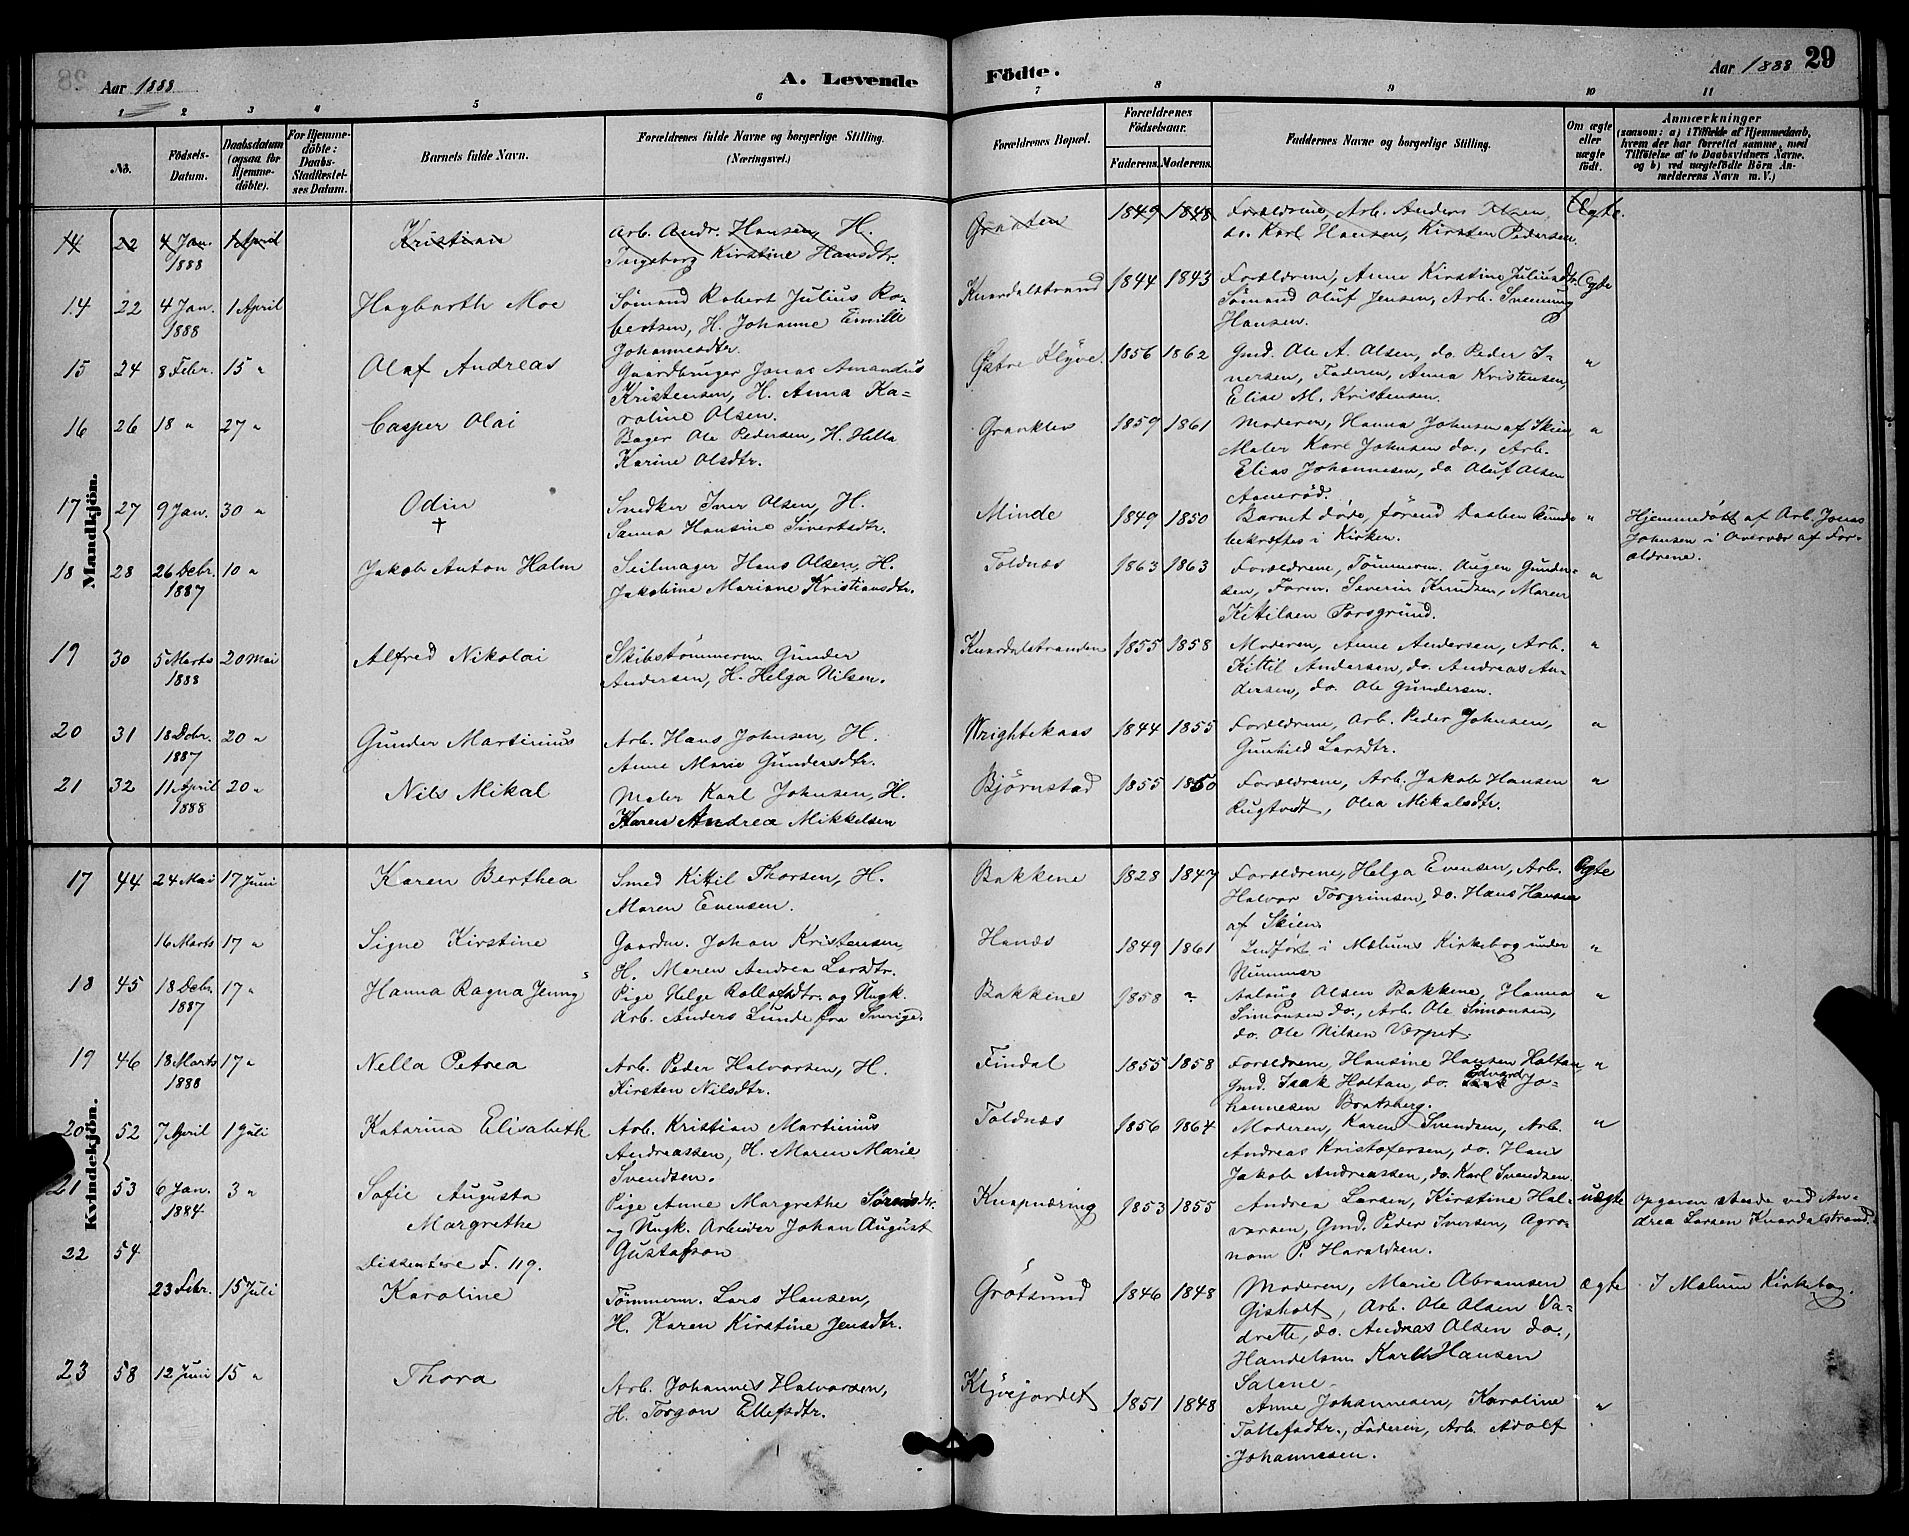 28
Aar 1888
A. Levende
Födte.
Aar 1888
29
1 2 3 4 5 6 7 8 9 10 11
No.
Födsels-Datum.
Daabsdatum (ogsaa for Hjemmedöbte).
For Hjemmedöbte: Daabs-Stadfæstelses Datum.
Barnets fulde Navn.
Forældrenes fulde Navne og borgerlige Stilling. (Næringsvei.)
Forældrenes Bopæl.
Forældrenes Födselsaar.
Faderens. Moderens.
Faddernes Navne og borgerlige Stilling.
Om ægte eller uægte födt.
Anmærkninger
(saasom: a) i Tilfælde af Hjemmedaab, hvem der har forrettet samme, med Tilföielse af to Daabsvidners Navne, og b) ved uægtefödte Börn Anmelderens Navn m. V.)
Mandkjön.
14 22 4 Jan. 1888 1 April Kristian
Arb. Andr. Hansen, H.
Ingeborg Kirstine Hansdtr.
Graaten 1849 1848
Forældrene, Arb. Anders Olsen,
do. Karl Hansen, Kirsten Pedersen.
Ægte.
14 22 4 Jan. 1888 1 April Hagbarth Moe
Sömand Robert Julius Ro-
bertsen, H. Johanne Emilie
Johannesdtr.
Knardalstrand 1844 1843
Forældrene, Anne Kirstine Juliusdtr.
Sömand Oluf Jensen, Arb. Svennung
Hansen.
Ægte
15 24 8 Febr. 15 " Olaf Andreas
Gaardbruger Jonas Amandus
Kristensen, H. Anna Ka-
roline Olsen.
Østre Klyve 1856 1862
Gmd. Ole A. Olsen, do. Peder I-
versen, Faderen, Anna Kristensen,
Elise M. Kristensen.
"
16 26 18 " 27 " Casper Olai
Bager Ole Pedersen, H. Hella
Karine Olsdtr.
Graaklev 1859 1861
Moderen, Hanna Johnsen af Skien
Maler Karl Johnsen do., Arb.
Elias Johannesen, do. Oluf Olsen
Aamerød.
"
17 27 9 Jan. 30 " Odin
†
Snedker Iver Olsen, H.
Sanna Hansine Sivertsdtr.
Minde 1849 1850
Barnet døde, förend Daaben kunde
bekræftes i Kirken.
"
Hjemmedöbt af Arb. Jonas
Johnsen i Overvær af For-
ældrene.
18 28 26 Debr. 1887 10 " Jakob Anton Holm
Seilmager Hans Olsen, H.
Jakobine Mariane Kristiansdtr.
Toldnæs 1863 1863
Forældrene, Tömmerm. Augen Gunder-
sen, Form. Severin Knudsen, Maren
Kittilsen Porsgrund.
"
19 30 5 Marts 1888 20 Mai Alfred Nikolai
Skibstömmerm. Gunder
Andersen, H. Helga Nilsen.
Knardalstranden 1855 1858
Moderen, Anne Andersen, Arb.
Kittil Andersen, do. Andreas An-
dersen, do. Ole Gundersen.
"
20 31 18 Debr. 1887 20 " Gunder Martinius
Arb. Hans Johnsen, H.
Anne Marie Gundersdtr.
Wrightekaas 1844 1855
Forældrene, Arb. Peder Johnsen,
Gunhild Larsdtr.
"
21 32 11 April 1888 20 " Nils Mikal
Maler Karl Johnsen, H.
Karen Andrea Mikkelsen
Björnstad 1855 1850
Forældrene, Arb. Jakob Hansen
Rugtvedt, Olea Mikalsdtr.
"
Kvindekjön.
17 44 24 Mai 17 Juni Karen Berthea
Smed Kittil Thorsen, H.
Maren Evensen.
Bakkene 1828 1847
Forældrene, Helga Evensen, Arb.
Halvor Torgrimsen, do. Hans Hansen
af Skien
Ægte
16 Marts 17 " Signe Kirstine
Gaardm. Johan Kristensen,
H. Maren Andrea Larsdtr.
Hanæs 1849 1861
Indfört i Mælums Kirkebog under
Nummer
"
18 45 18 Debr. 1887 17 " Hanna Ragna Jenny
Pige Helge Rollefsdtr. og Ungk.
Arb. Anders Lunde fra Sverige.
Bakkene 1858 ?
Aslaug Olsen Bakkene, Hanna
Simonsen do., Arb. Ole Simonsen,
do. Ole Nilsen Værpet.
"
19 46 18 Marts 1888 17 " Nella Petrea
Arb. Peder Halvorsen, H.
Kirsten Nilsdtr.
Findal 1855 1858
Forældrene, Hansine Hansen Holtan
Gmd. Isak Holtan, do. Edvard Jo-
hannesen Bratsberg.
"
20 52 7 April 1 Juli Katarina Elisabeth
Arb. Kristian Martinius
Andreassen, H. Maren Marie
Svendsen.
Toldnæs 1856 1864
Moderen, Karen Svendsen, Arb.
Andreas Kristofersen, do. Hans
Jakob Andreassen, do. Karl Svendsen.
"
21 53 6 Jan. 1884 3 " Sofie Augusta
Margrethe
Pige Anne Margrethe Sörensdtr.
og Ungk. Arbeider Johan August
Gustafson
Knapnæring 1853 1855
Andrea Larsen, Kirstine Hal-
varsen, Gmd. Peder Iversen, Agro-
nom P. Haraldsen.
uægte
Opgaven skede ved An-
drea Larsen Knardalstrand.
22 54 Dissentere F. 119.
23 Febr. 15 Juli Karoline
Tömmerm. Lars Hansen,
H. Karen Kirstine Jensdtr.
Grötsund 1846 1848
Moderen, Marie Abramsen
Gisholt, Arb. Ole Olsen Va-
drette, do. Andreas Olsen do.,
Handelsm. Karl Hansen
Salene.
ægte
I Mælum Kirkebog.
23 58 12 Juni 15 " Thora
Arb. Johannes Halvorsen,
H. Torgon Ellefsdtr.
Klyvejordet 1851 1848
Anne Johannesen, Karoline
Tollefsdtr., Faderen, Arb. Adolf
Johannesen.
"